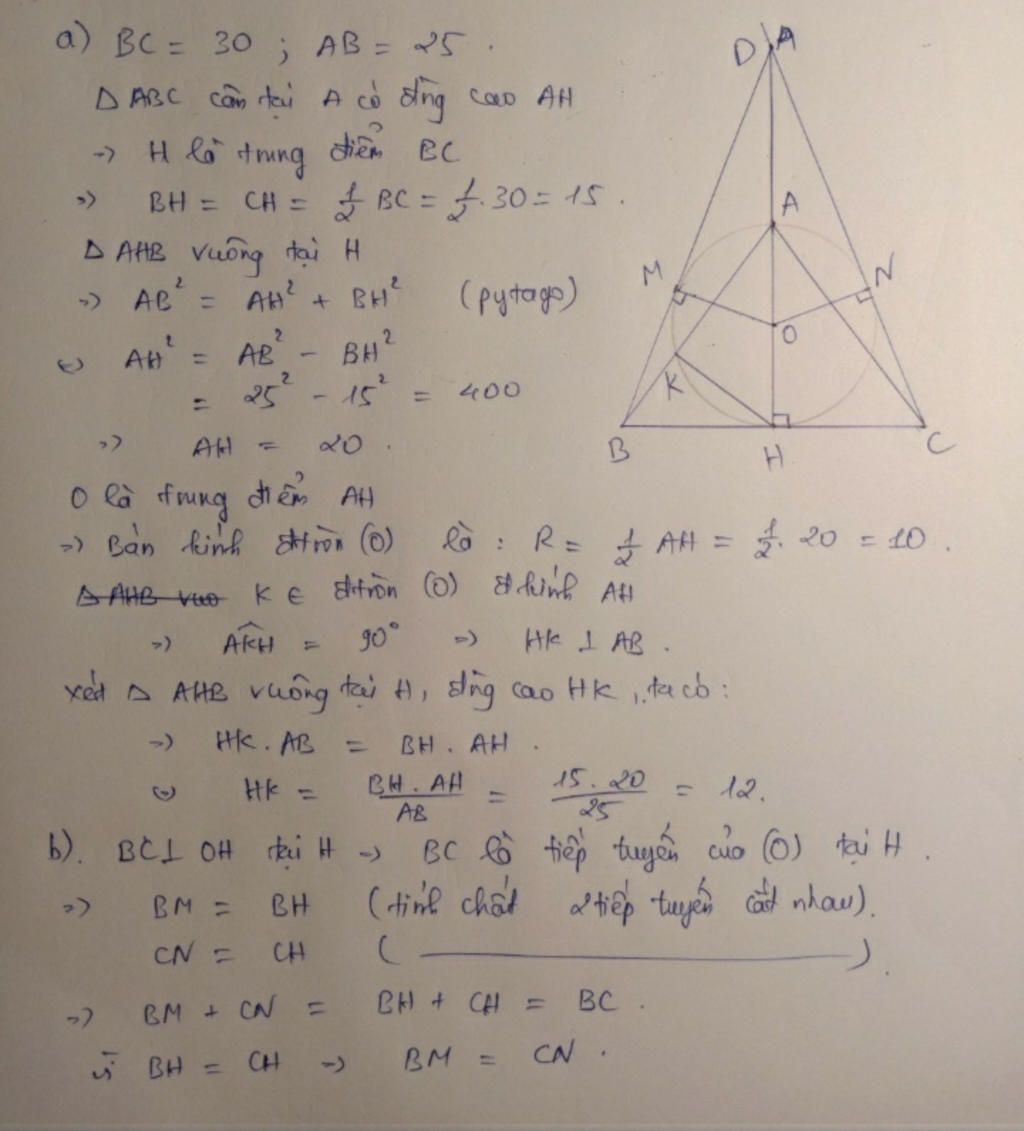 a) BC = 30 ; AB = 25 .
Δ ABC cân tại A có đờng cao AH
=> H là trung điểm BC
=> BH = CH = 1/2 BC = 1/2 . 30 = 15 .
Δ AHB vuông tại H
=> AB² = AH² + BH² (pytago)
<=> AH² = AB² - BH²
= 25² - 15² = 400
=> AH = 20 .
O là trung điểm AH
=> Bán kính đtròn (O) là : R = 1/2 AH = 1/2 . 20 = 10 .
Δ AHB vuo K ∈ đtròn (O) đkính AH
=> AKH = 90° => HK ⊥ AB .
xét Δ AHB vuông tại H, đờng cao HK, ta có :
=> HK . AB = BH . AH .
<=> HK = BH . AH / AB = 15 . 20 / 25 = 12.
b). BC ⊥ OH tại H => BC là tiếp tuyến của (O) tại H .
=> BM = BH (tính chất 2 tiếp tuyến cắt nhau).
CN = CH ( ——— ).
=> BM + CN = BH + CH = BC .
vì BH = CH => BM = CN .
D A
A
M
N
O
K
B
H
C